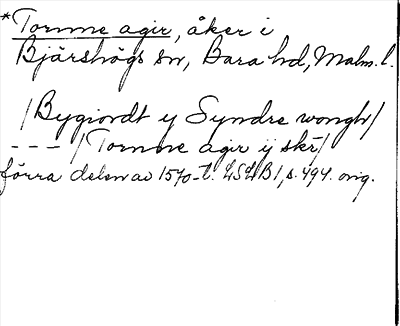 *Tornne agir, åker i
Bjärshögs sn, Bara hd, Malm. l.
/Bygiordt y Syndre wongh/
--- /Tornne agir ij skr/
förra delen av 1570-t. LSLB1, s. 494. orig.